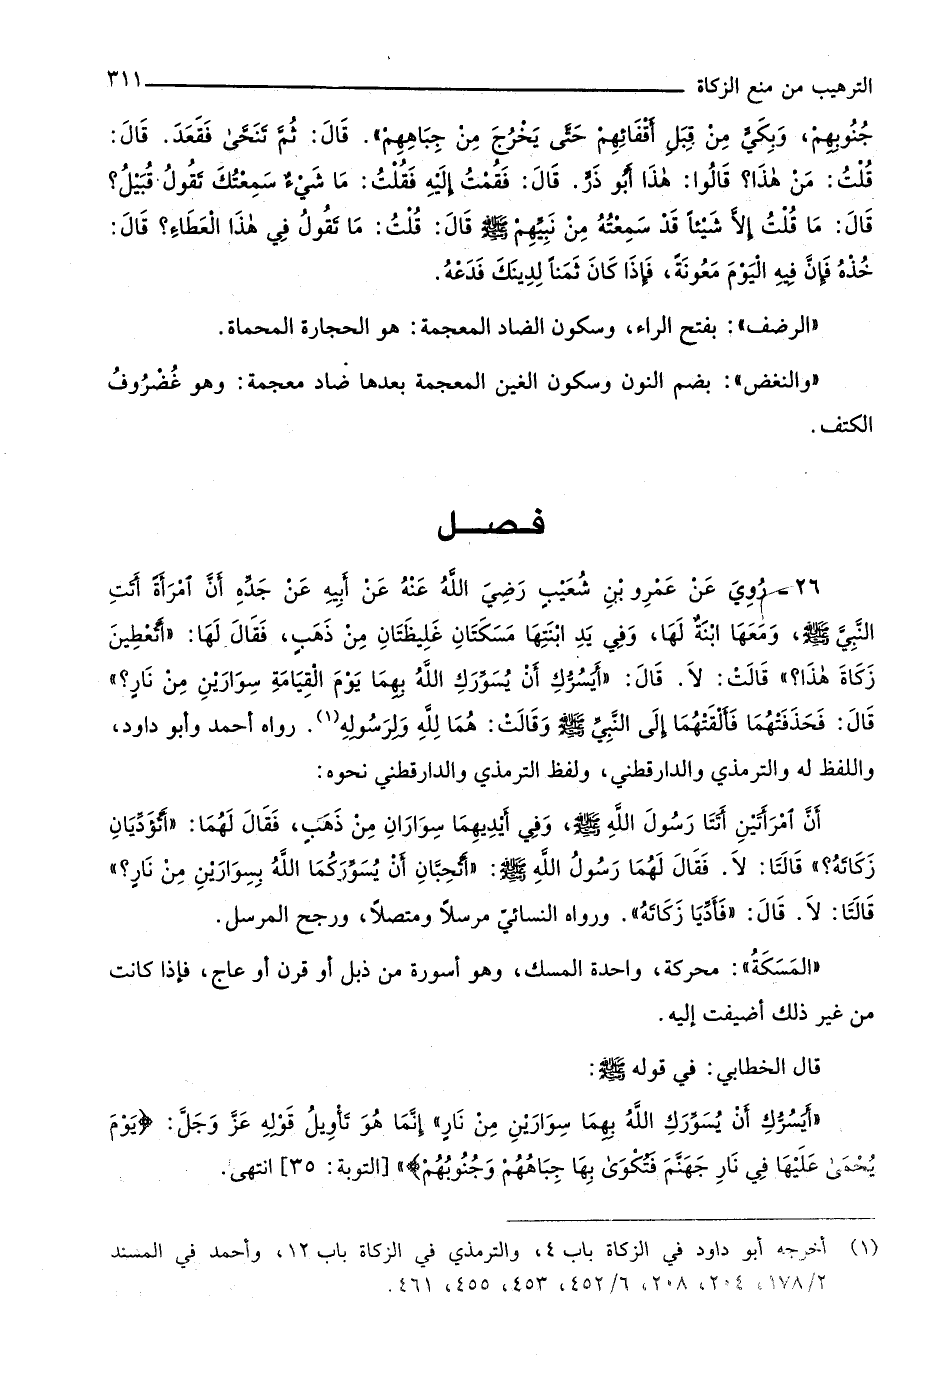 الترهيب من منع الزكاة ٣١١
جُنُوبِهِمْ، وَبِكَيٍّ مِنْ قِبَلِ أَقْفَائِهِمْ حَتَّى يَخْرُجَ مِنْ جِبَاهِهِمْ». قَالَ: ثُمَّ تَنَحَّىٰ فَقَعَدَ. قَالَ:
قُلْتُ: مَنْ هٰذَا؟ قَالُوا: هٰذَا أَبُو ذَرٍّ. قَالَ: فَقُمْتُ إِلَيْهِ فَقُلْتُ: مَا شَيْءٌ سَمِعْتُكَ تَقُولُ قُبَيْلُ؟
قَالَ: مَا قُلْتُ إِلاَّ شَيْئاً قَدْ سَمِعْتُهُ مِنْ نَبِيِّهِمْ ﷺ قَالَ: قُلْتُ: مَا تَقُولُ فِي هٰذَا الْعَطَاءِ؟ قَالَ:
خُذْهُ فَإِنَّ فِيهِ الْيَوْمَ مَعُونَةً، فَإِذَا كَانَ ثَمَناً لِدِينِكَ فَدَعْهُ.
«الرضف»: بفتح الراء، وسكون الضاد المعجمة: هو الحجارة المحماة.
«والنغض»: بضم النون وسكون الغين المعجمة بعدها ضاد معجمة: وهو غُضْرُوفُ
الكتف.
فـصـــل
٢٦ - رُوِيَ عَنْ عَمْرِو بْنِ شُعَيْبٍ رَضِيَ اللَّهُ عَنْهُ عَنْ أَبِيهِ عَنْ جَدِّهِ أَنَّ ٱمْرَأَةً أَتَتِ
النَّبِيَّ ﷺ، وَمَعَهَا ابْنَةٌ لَهَا، وَفِي يَدِ ابْنَتِهَا مَسَكَتَانِ غَلِيظَتَانِ مِنْ ذَهَبٍ، فَقَالَ لَهَا: «أَتُعْطِينَ
زَكَاةَ هٰذَا؟» قَالَتْ: لاَ. قَالَ: «أَيَسُرُّكِ أَنْ يُسَوِّرَكِ اللَّهُ بِهِمَا يَوْمَ الْقِيَامَةِ سِوَارَيْنِ مِنْ نَارٍ؟»
قَالَ: فَحَذَفَتْهُمَا فَأَلْقَتْهُمَا إِلَى النَّبِيِّ ﷺ وَقَالَتْ: هُمَا لِلَّهِ وَلِرَسُولِهِ(١). رواه أحمد وأبو داود،
واللفظ له والترمذي والدارقطني، ولفظ الترمذي والدارقطني نحوه:
أَنَّ ٱمْرَأَتَيْنِ أَتَتَا رَسُولَ اللَّهِ ﷺ، وَفِي أَيْدِيهِمَا سِوَارَانِ مِنْ ذَهَبٍ، فَقَالَ لَهُمَا: «أَتُؤَدِّيَانِ
زَكَاتَهُ؟» قَالَتَا: لاَ. فَقَالَ لَهُمَا رَسُولُ اللَّهِ ﷺ: «أَتُحِبَّانِ أَنْ يُسَوِّرَكُمَا اللَّهُ بِسِوَارَيْنِ مِنْ نَارٍ؟»
قَالَتَا: لاَ. قَالَ: «فَأَدِّيَا زَكَاتَهُ». ورواه النسائيّ مرسلاً ومتصلاً، ورجح المرسل.
«المَسَكَةُ»: محركة، واحدة المسك، وهو أسورة من ذبل أو قرن أو عاج، فإذا كانت
من غير ذلك أضيفت إليه.
قال الخطابي: في قوله ﷺ:
«أَيَسُرُّكِ أَنْ يُسَوِّرَكِ اللَّهُ بِهِمَا سِوَارَيْنِ مِنْ نَارٍ» إِنَّمَا هُوَ تَأْوِيلُ قَوْلِهِ عَزَّ وَجَلَّ: ﴿يَوْمَ
يُحْمَىٰ عَلَيْهَا فِي نَارِ جَهَنَّمَ فَتُكْوَىٰ بِهَا جِبَاهُهُمْ وَجُنُوبُهُمْ﴾» [التوبة: ٣٥] انتهى.
(١) أخرجه أبو داود في الزكاة باب ٤، والترمذي في الزكاة باب ١٢، وأحمد في المسند
٢/١٧٨، ٢٠٤، ٢٠٨، ٦/٤٥٢، ٤٥٣، ٤٥٥، ٤٦١.